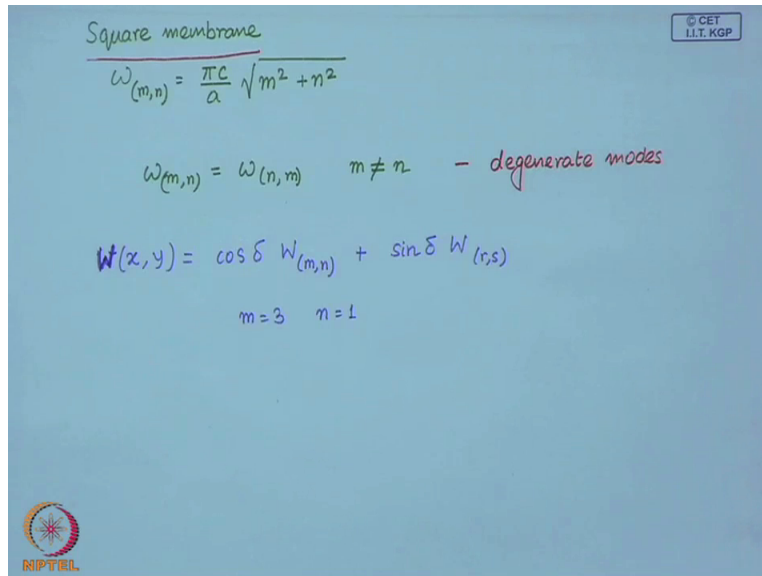 © CET
I.I.T. KGP
Square membrane
ω(m,n) = πc/a √m² + n²
ω(m,n) = ω(n,m) m ≠ n - degenerate modes
W(x,y) = cos δ W(m,n) + sin δ W(r,s)
m = 3 n = 1
NPTEL